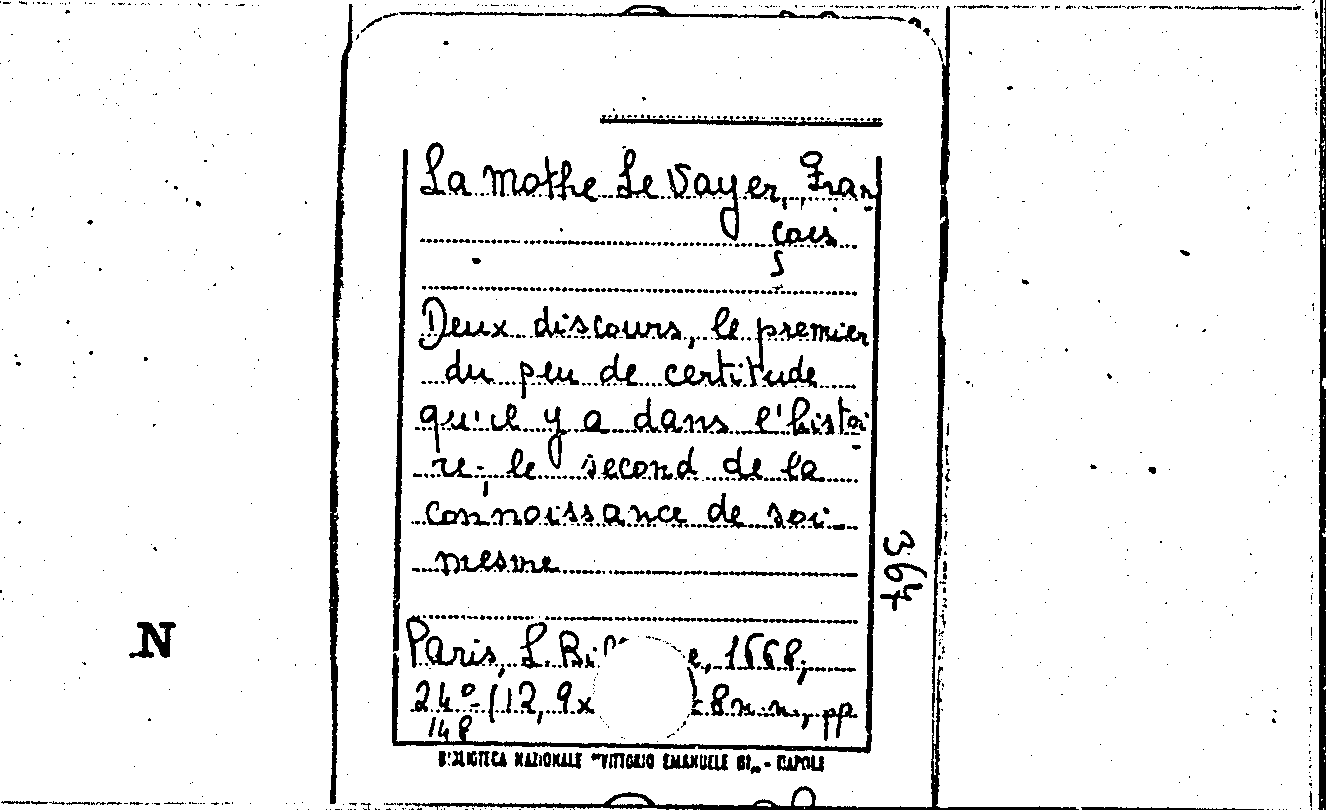 La Mothe Le Vayer, Fran
çois
Deux discours, le premier
du peu de certitude
qu'il y a dans l'histoi-
re; le second de la
connoissance de soi-
mesme
Paris, L. Bill e, 1668;
24° (12,9x 8 n.n., pp
148
364
N
BIBLIOTECA NAZIONALE "VITTORIO EMANUELE III" - NAPOLI